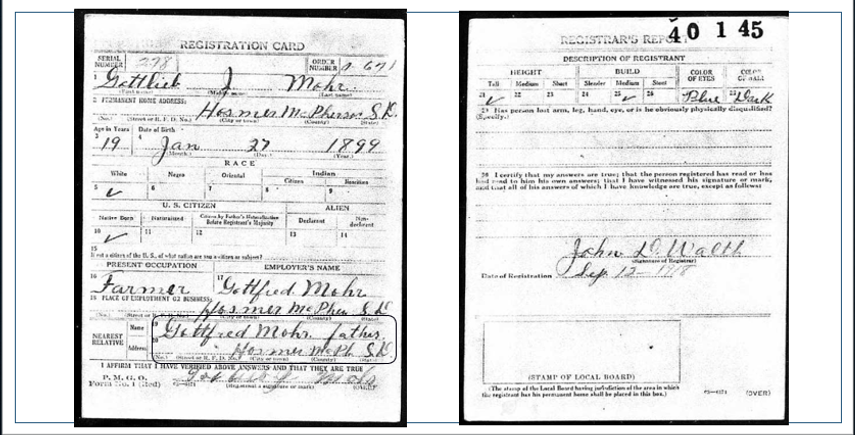 REGISTRATION CARD
SERIAL NUMBER 298 ORDER NUMBER
1 Gottlieb J Mohr
(First name) (Middle name) (Last name)
2 PERMANENT HOME ADDRESS:
Hosmer McPherson S.D.
(No.) (Street or R. F. D. No.) (City or town) (County) (State)
Age in Years Date of Birth
3 19 4 Jan 27 1899
(Month.) (Day.) (Year.)
RACE
White Negro Oriental Indian
Citizen Noncitizen
5 ✓ 6 7 8 9
U. S. CITIZEN ALIEN
Native Born Naturalized Citizen by Father's Naturalization Before Registrant's Majority Declarant Non-declarant
10 ✓ 11 12 13 14
15
If not a citizen of the U. S., of what nation are you a citizen or subject?
PRESENT OCCUPATION EMPLOYER'S NAME
16 Farmer 17 Gottfred Mohr
18 PLACE OF EMPLOYMENT OR BUSINESS:
Hosmer McPher S.D.
(No.) (Street or R. F. D. No.) (City or town) (County) (State)
NEAREST RELATIVE Name 19 Gottfred Mohr, father,
Address 20 Hosmer McPh. S.D.
(No.) (Street or R. F. D. No.) (City or town) (County) (State)
I AFFIRM THAT I HAVE VERIFIED ABOVE ANSWERS AND THAT THEY ARE TRUE
P. M. G. O.
Form No. 1 (Red) (Registrant's signature or mark) (OVER)
REGISTRAR'S REPORT
40 1 45
DESCRIPTION OF REGISTRANT
HEIGHT BUILD COLOR OF EYES COLOR OF HAIR
Tall Medium Short Slender Medium Stout
21 ✓ 22 23 24 25 ✓ 26 27 Blue 28 Dark
29 Has person lost arm, leg, hand, eye, or is he obviously physically disqualified?
(Specify.)
30 I certify that my answers are true; that the person registered has read or has
had read to him his own answers; that I have witnessed his signature or mark,
and that all of his answers of which I have knowledge are true, except as follows:
John D. Walth
(Signature of Registrar)
Date of Registration Sep. 12 - 1918
(STAMP OF LOCAL BOARD)
(The stamp of the Local Board having jurisdiction of the area in which
the registrant has his permanent home shall be placed in this box.)
(OVER)